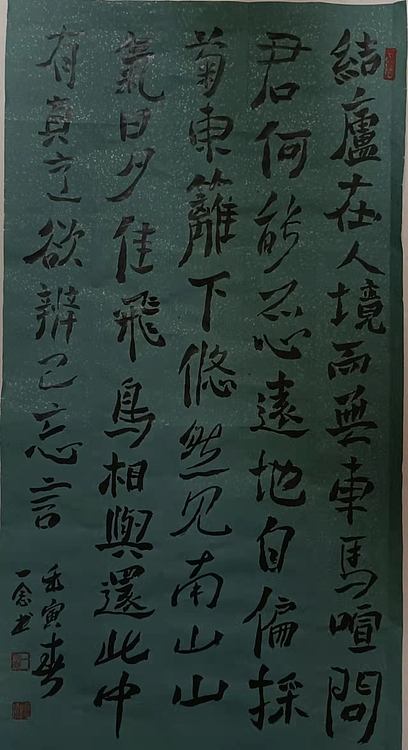 結廬在人境而無車馬喧問
君何能尔心遠地自偏採
菊東籬下悠然見南山山
氣日夕佳飛鳥相與還此中
有真意欲辨已忘言
壬寅春
一念书